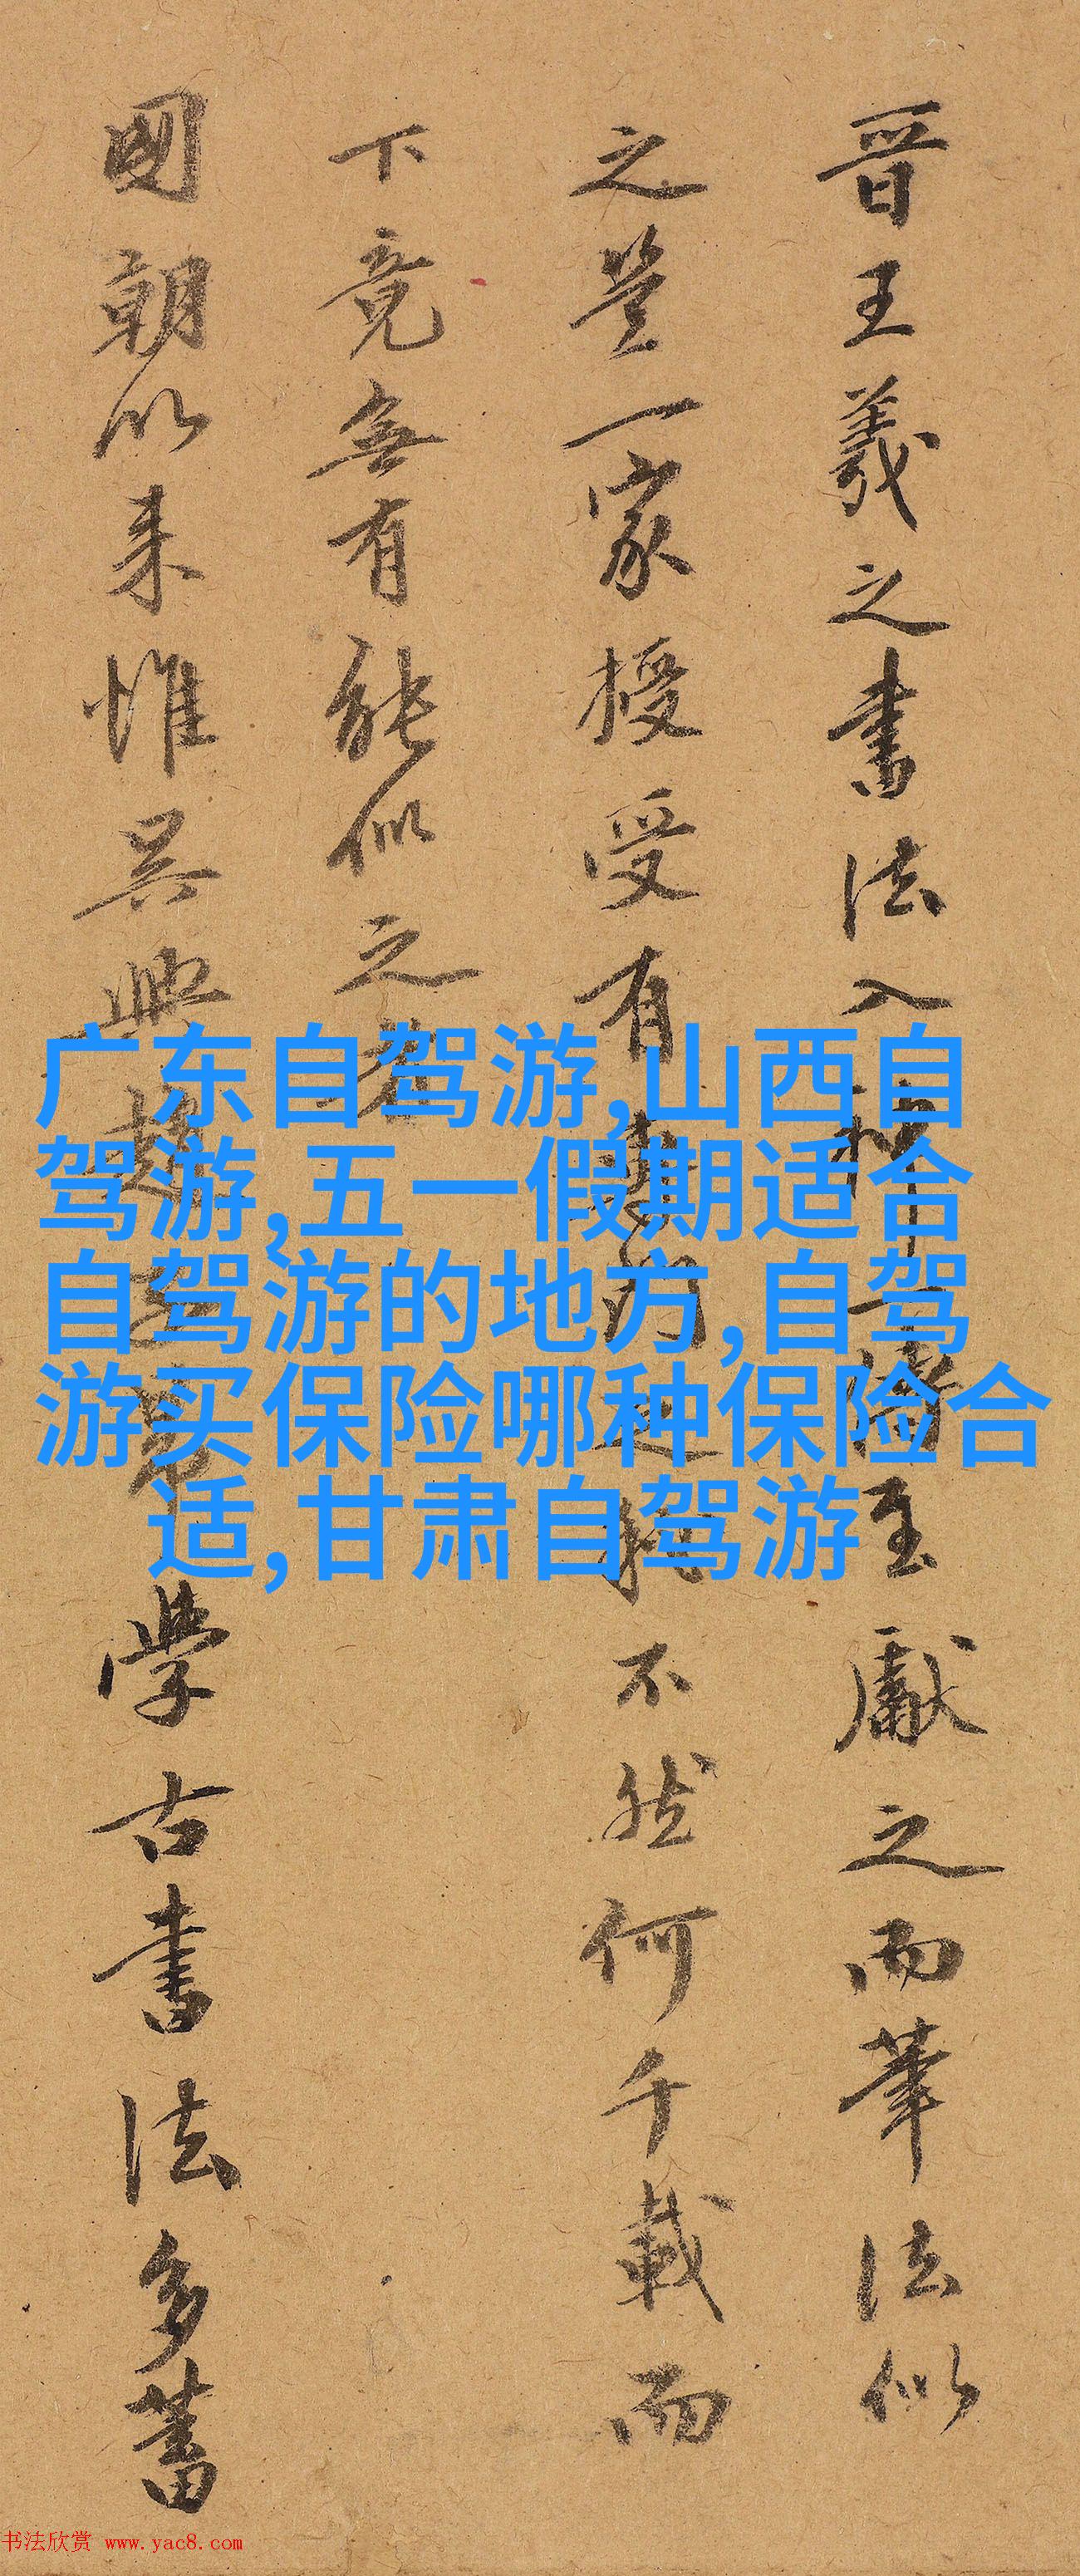 晋王羲之書法入神至獻之而筆法似
之豈一家授受有不然何千載而
下竟無有能似之者
國朝以来惟吴興趙學古書法多蓄
广东自驾游,山西自
驾游,五一假期适合
自驾游的地方,自驾
游买保险哪种保险合
适,甘肃自驾游
书法欣赏 www.yac8.com